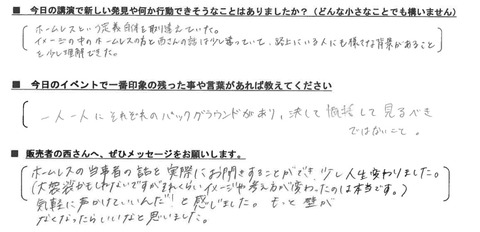 ■ 今日の講演で新しい発見や何か行動できそうなことはありましたか？（どんな小さなことでも構いません）
ホームレスという定義自体を取り違えていた。
イメージの中のホームレスの者と西さんの話は少し違っていて、路上にいる人にも様々な背景があること
を少し理解できた。
■ 今日のイベントで一番印象の残った事や言葉があれば教えてください
一人一人にそれぞれのバックグラウンドがあり、決して 価括して見るべき
ではないこと。
■ 販売者の西さんへ、ぜひメッセージをお願いします。
ホームレスの当事者の話を実際にお聞きすることができ、少し人生変わりました。
（大袈裟かもしれないですがまれくらいイメージや考え方が変わったのは本当です。）
気軽に声かけていいんだ！と感じました。もっと壁が
なくなったらいいなと思いました。